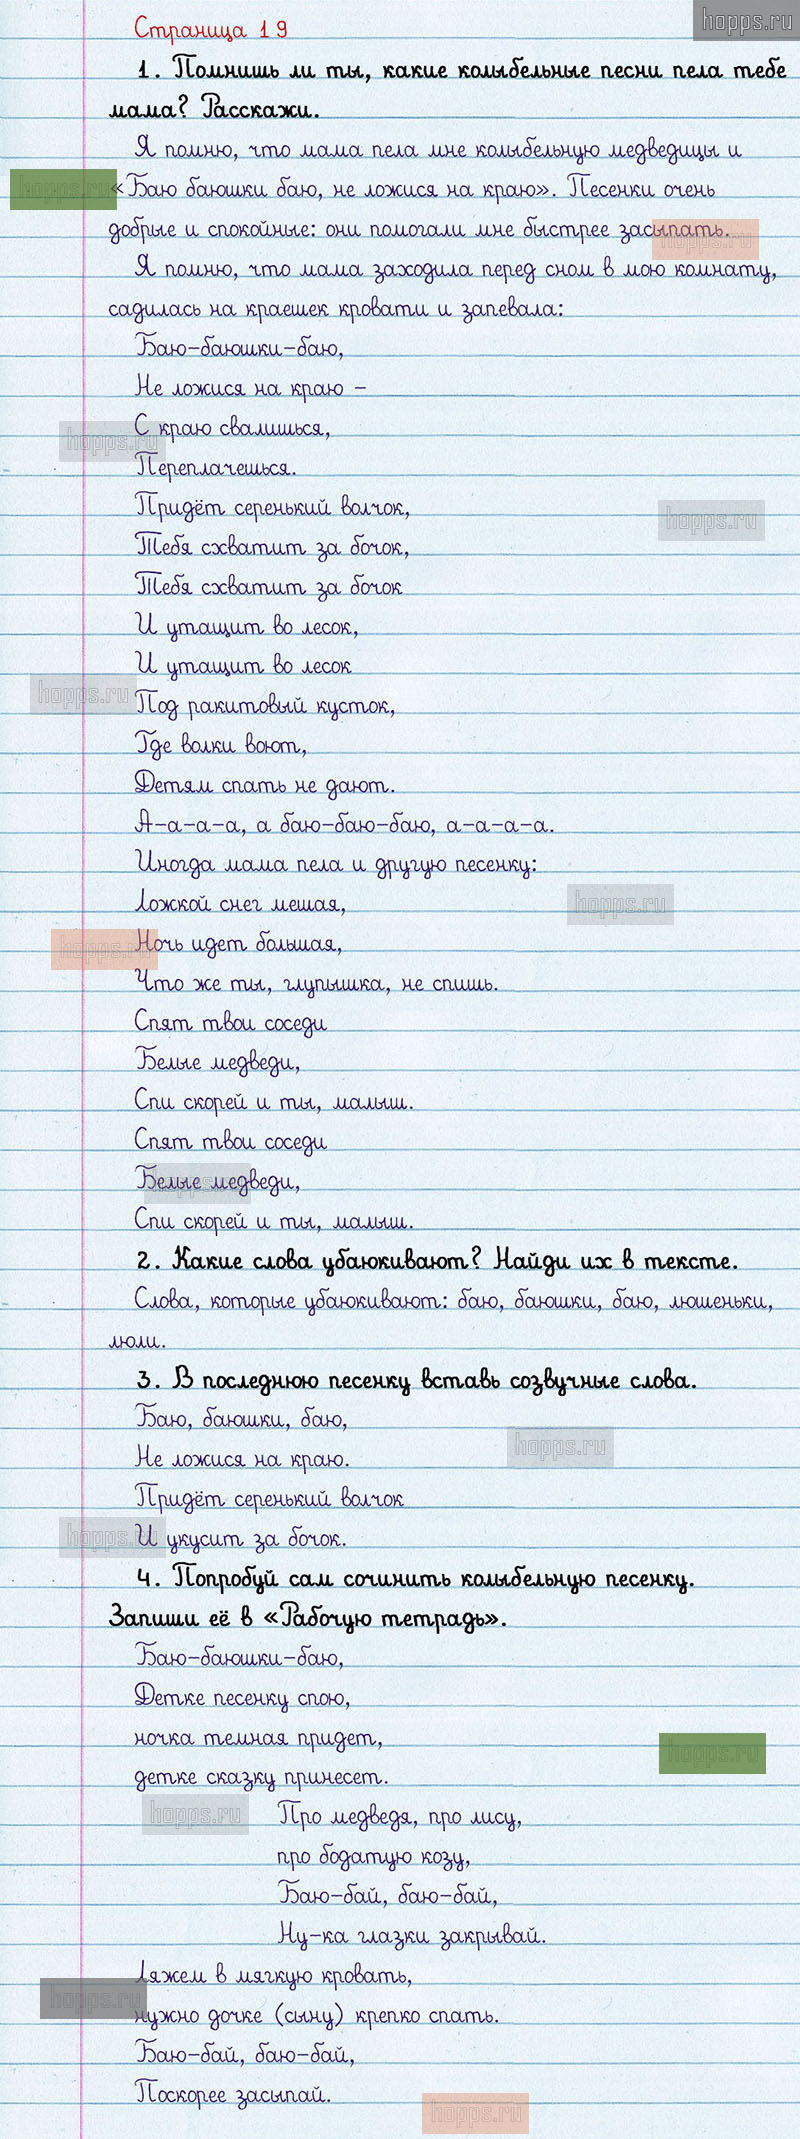 hopps.ru
Страница 19
1. Помнишь ли ты, какие колыбельные песни пела тебе
мама? Расскажи.
Я помню, что мама пела мне колыбельную медведицы и
hopps.ru
«Баю баюшки баю, не ложися на краю». Песенки очень
добрые и спокойные: они помогали мне быстрее засыпать.
hopps.ru
Я помню, что мама заходила перед сном в мою комнату,
садилась на краешек кровати и запевала:
Баю-баюшки-баю,
Не ложися на краю –
С краю свалишься,
hopps.ru
Переплачешься.
Придёт серенький волчок,
hopps.ru
Тебя схватит за бочок,
Тебя схватит за бочок
И утащит во лесок,
И утащит во лесок
hopps.ru
Под ракитовый кусток,
Где волки воют,
Детям спать не дают.
А-а-а-а, а баю-баю-баю, а-а-а-а.
Иногда мама пела и другую песенку:
Ложкой снег мешая,
hopps.ru
Ночь идет большая,
hopps.ru
Что же ты, глупышка, не спишь.
Спят твои соседи
Белые медведи,
Спи скорей и ты, малыш.
Спят твои соседи
Белые медведи,
hopps.ru
Спи скорей и ты, малыш.
2. Какие слова убаюкивают? Найди их в тексте.
Слова, которые убаюкивают: баю, баюшки, баю, люшеньки,
люли.
3. В последнюю песенку вставь созвучные слова.
Баю, баюшки, баю,
hopps.ru
Не ложися на краю.
Придёт серенький волчок
И укусит за бочок.
hopps.ru
4. Попробуй сам сочинить колыбельную песенку.
Запиши её в «Рабочую тетрадь».
Баю-баюшки-баю,
Детке песенку спою,
ночка темная придет,
hopps.ru
детке сказку принесет.
Про медведя, про лису,
hopps.ru
про бодатую козу,
Баю-бай, баю-бай,
Ну-ка глазки закрывай.
Ляжем в мягкую кровать,
hopps.ru
нужно дочке (сыну) крепко спать.
Баю-бай, баю-бай,
Поскорее засыпай.
hopps.ru